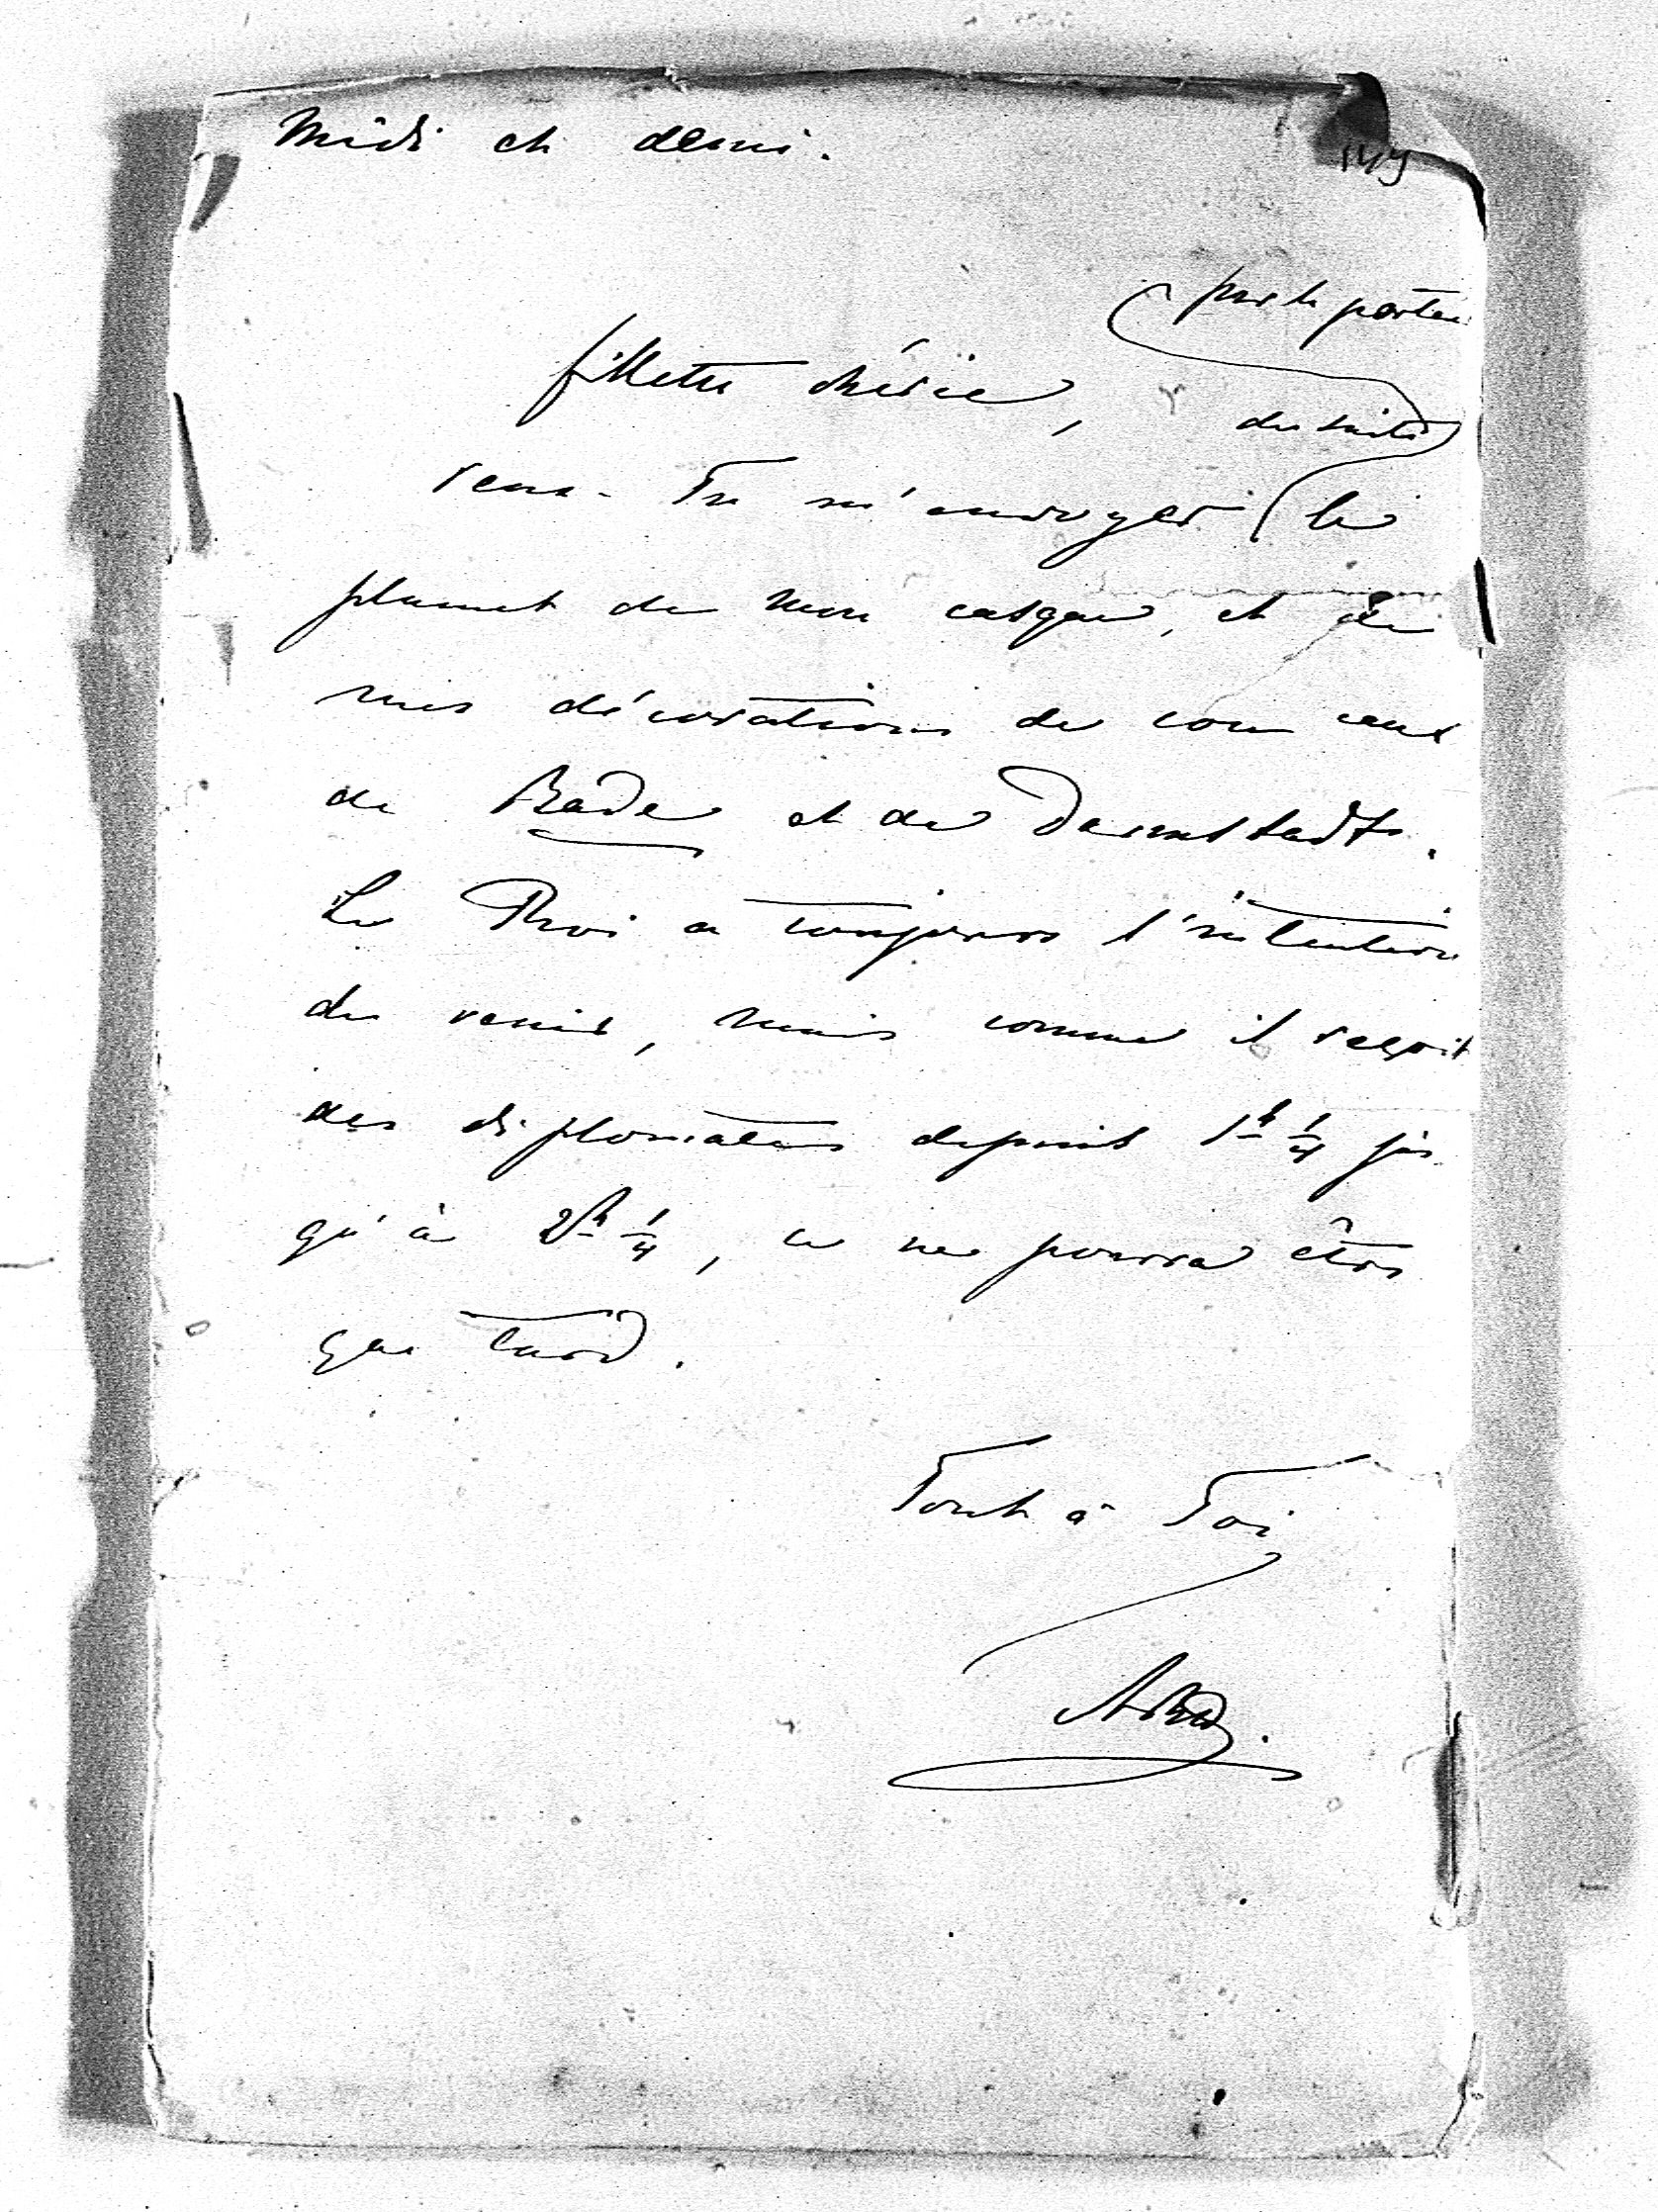 Midi et demi.
149
par le porteur
fillette chérie,
de suite
veux-Tu m'envoyer le
plumet de mon casque, et de
mes décorations de cou ceux
de Bade et de Darmstadt.
Le Roi a toujours l'intention
de venir, mais comme il reçoit
des diplomates depuis 1h 1/4 jus
qu'à 2h 1/4, ce ne pourra être
que tard.
Tout à Toi